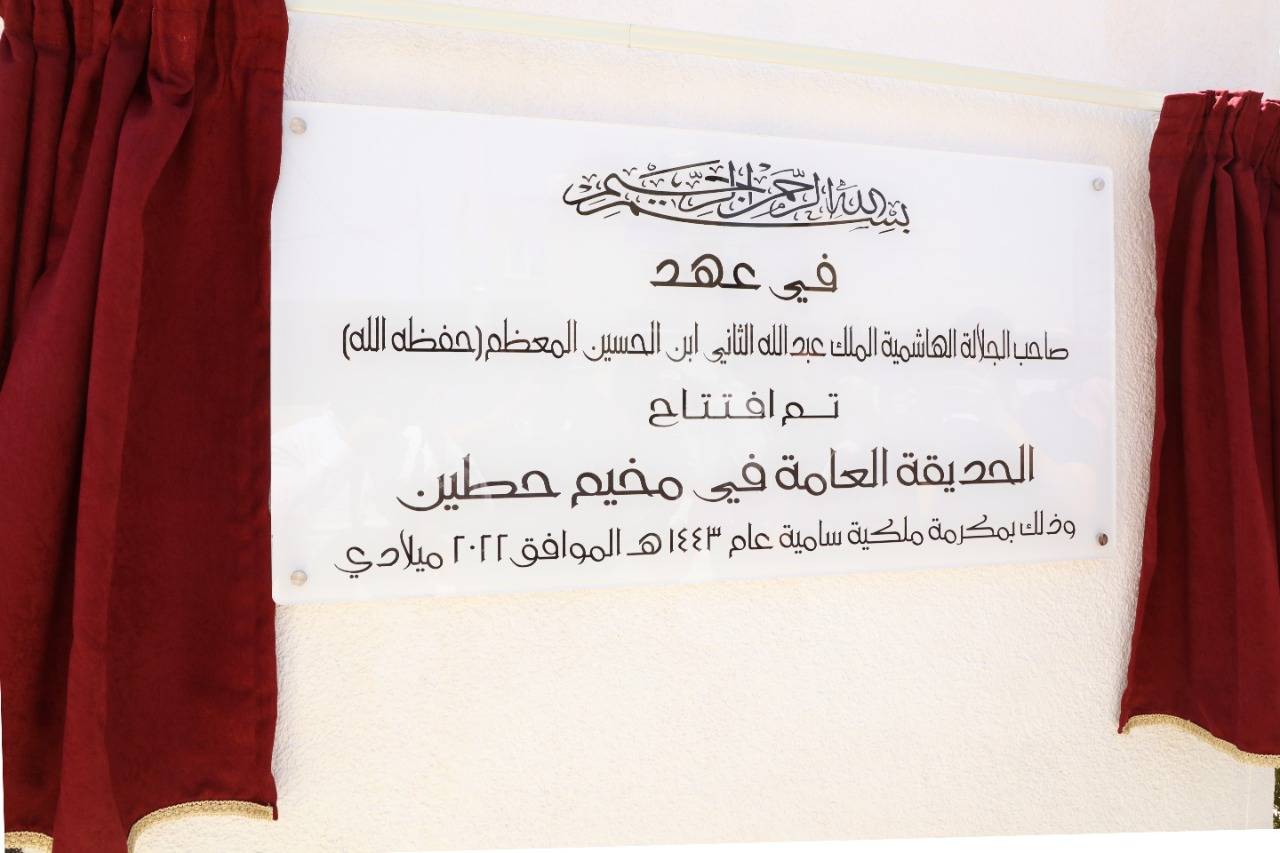 بسم الله الرحمن الرحيم
في عهد
صاحب الجلالة الهاشمية الملك عبدالله الثاني ابن الحسين المعظم (حفظه الله)
تم افتتاح
الحديقة العامة في مخيم حطين
وذلك بمكرمة ملكية سامية عام ١٤٤٣ هـ الموافق ٢٠٢٢ ميلادي